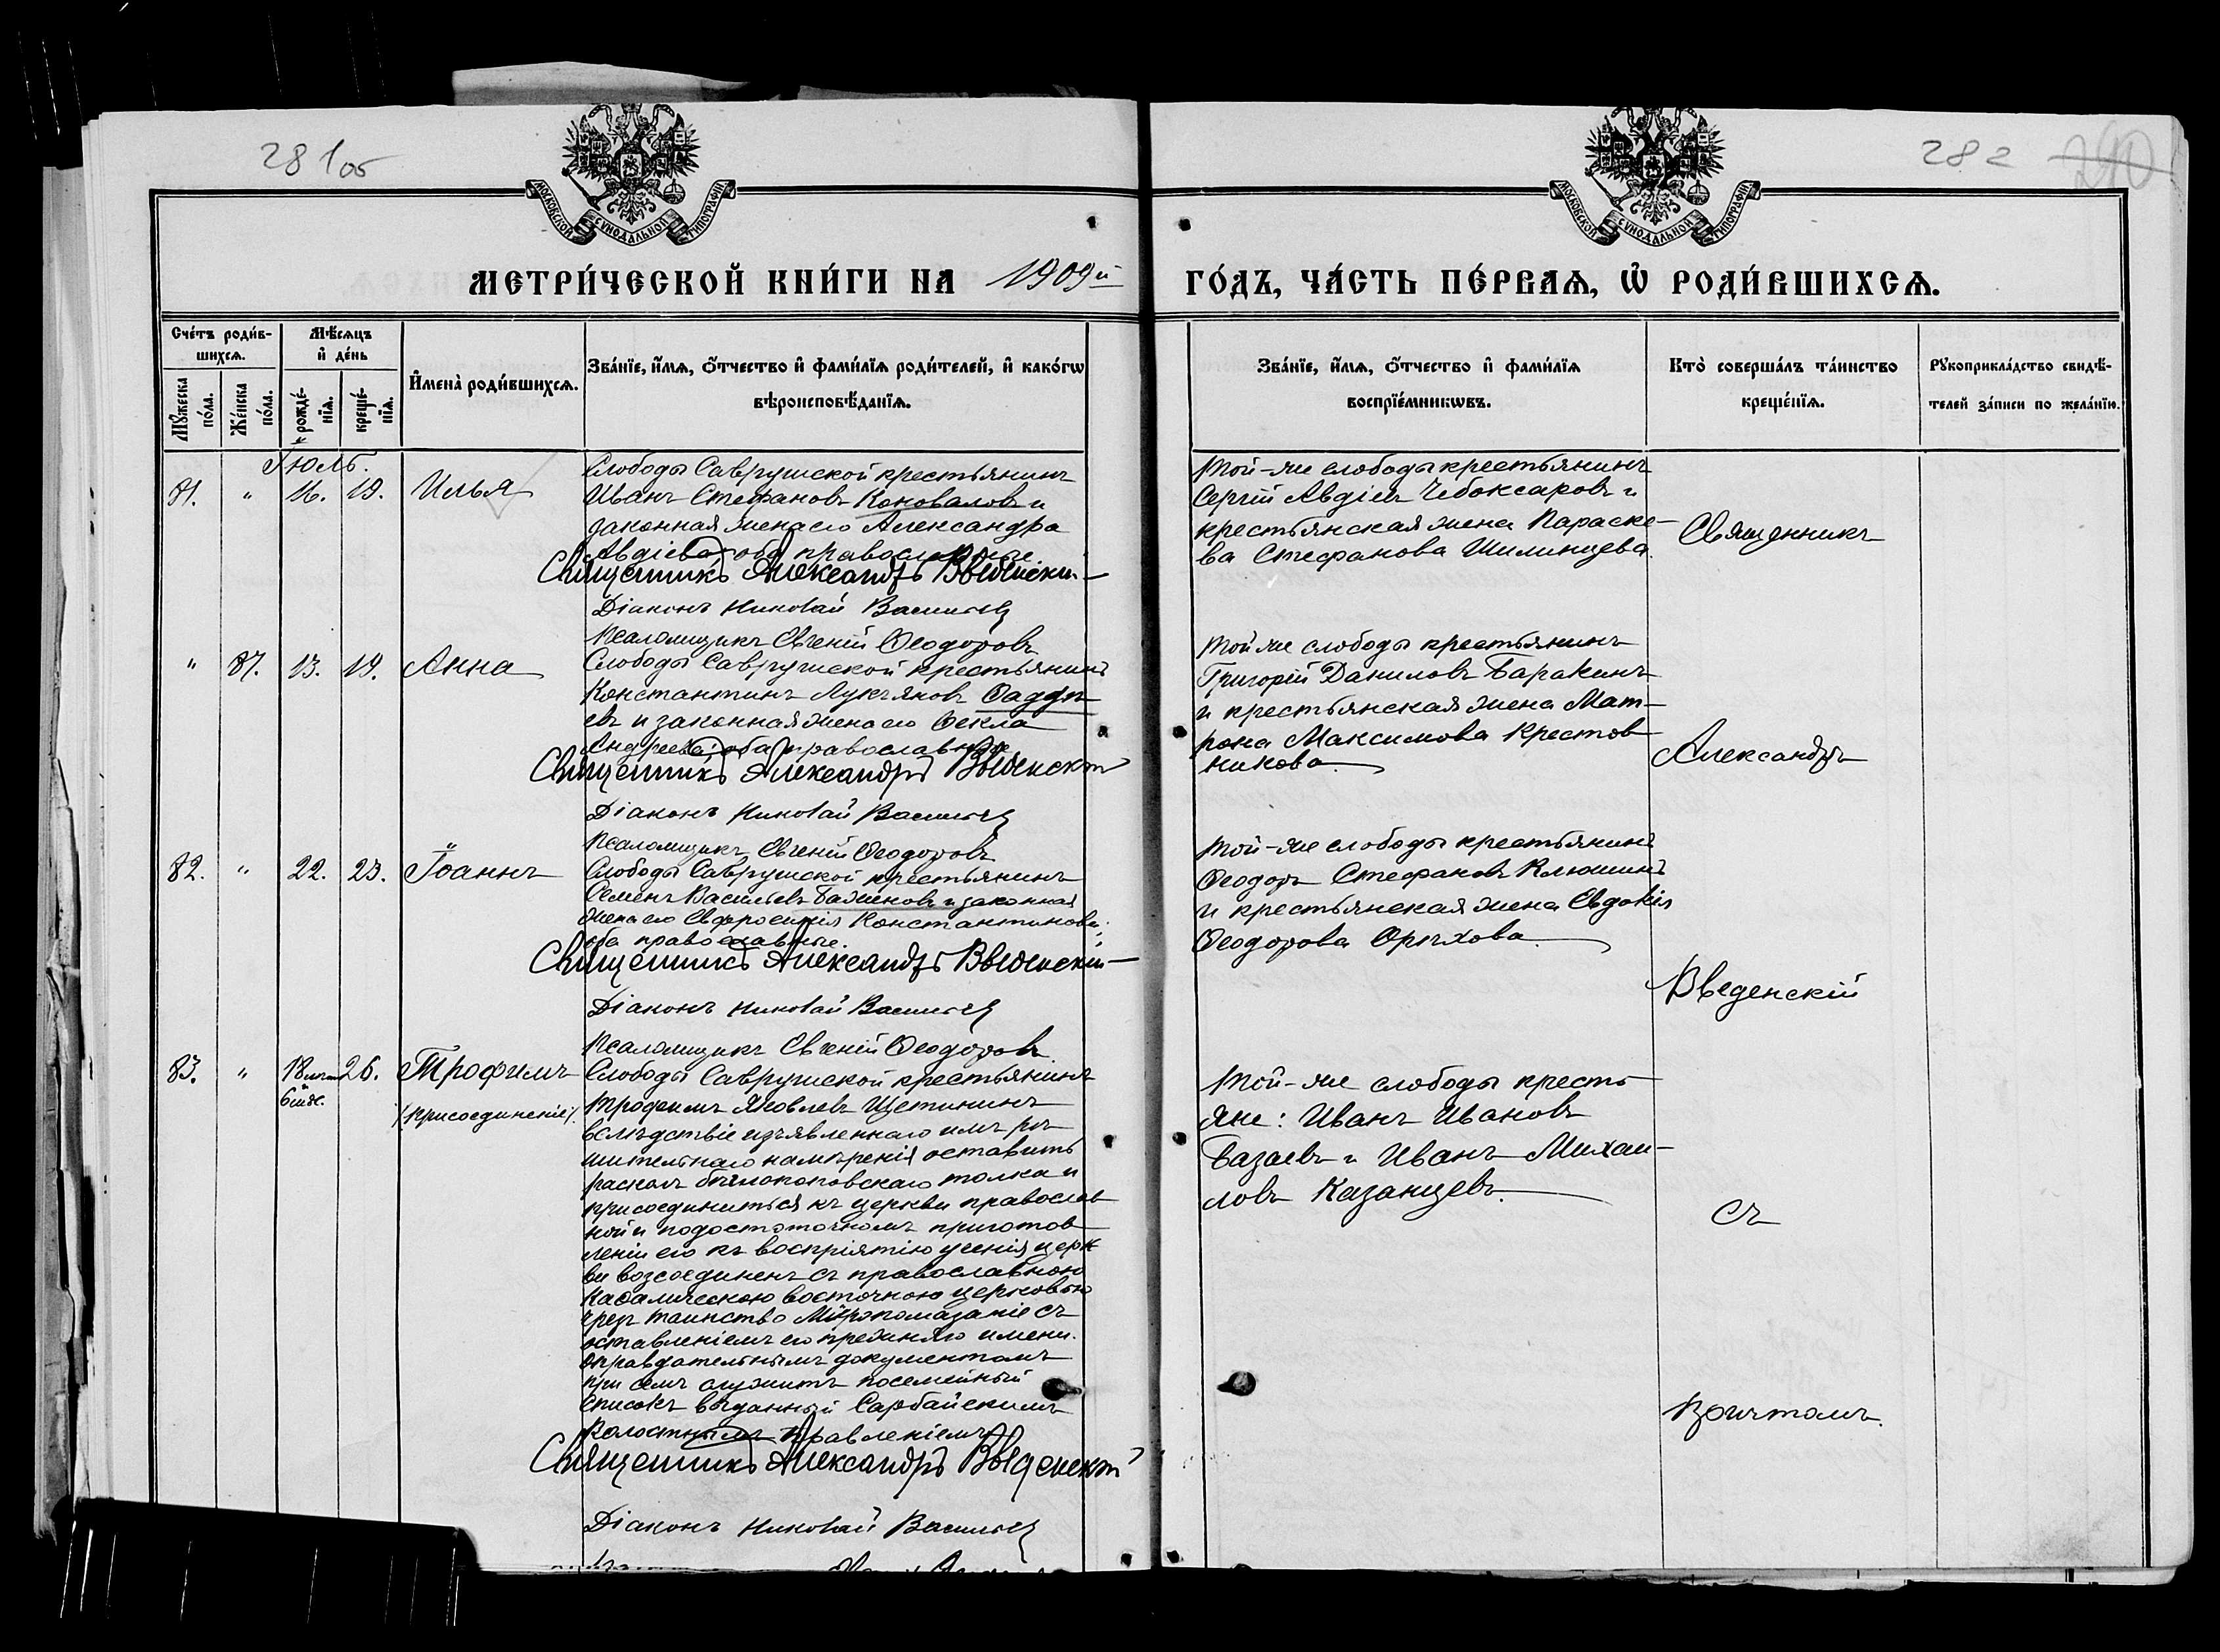 281об
282
МОСКОВСКОЙ СѴНОДАЛЬНОЙ ТИПОГРАФІИ
МОСКОВСКОЙ СѴНОДАЛЬНОЙ ТИПОГРАФІИ
МЕТРИ́ЧЕСКОЙ КНИ́ГИ НА 1909й
ГО́ДЪ, ЧА́СТЬ ПЕ́РВАѦ, Ѡ҆ РОДИ́ВШИХСѦ.
Сче́тъ роди́в-
шихсѧ.
Мꙋ́жеска по́ла.
Же́нска по́ла.
Мѣ́сѧцъ
и҆ де́нь
рожде́-
нїѧ.
креще́-
нїѧ.
И҆мена̀ роди́вшихсѧ.
Зва́нїе, и҆́мѧ, ѻ҆́тчество и҆ фами́лїѧ роди́телей, и҆ како́гѡ
вѣроисповѣ́данїѧ.
Зва́нїе, и҆́мѧ, ѻ҆́тчество и҆ фами́лїѧ
воспрїе́мникѡвъ.
Кто̀ соверша́лъ та́инство
креще́нїѧ.
Рꙋкоприкла́дство свидѣ́-
телей за́писи по жела́нїю.
Іюль.
81. " 16. 19. Илья
Слободы Саврушской крестьянинъ
Иванъ Стефановъ Коноваловъ и
законная жена его Александра
Авдіева; оба православные.
Священникъ Александръ Введенскій
Діаконъ Николай Васильев
Псаломщикъ Евгеній Ѳеодоровъ
Той-же слободы крестьянинъ
Сергій Авдіевъ Чебоксаровъ и
крестьянская жена Параске-
ва Стефанова Шилинцева.
Священникъ
" 87. 13. 19. Анна
Слободы Саврушской крестьянинъ
Константинъ Лукъяновъ Ѳаддѣ-
евъ и законная жена его Ѳекла
Андреева; оба православные
Священникъ Александръ Введенскій
Діаконъ Николай Васильев
Псаломщикъ Евгеній Ѳеодоровъ
Той же слободы крестьянинъ
Григорій Даниловъ Баракинъ
и крестьянская жена Мат-
рона Максимова Крестов
никова.
Александръ
82. " 22. 23. Іоаннъ
Слободы Саврушской крестьянинъ
Семенъ Васильевъ Баженовъ и законная
жена его Евфросинія Константинова;
оба православные.
Священникъ Александръ Введенскій
Діаконъ Николай Васильев
Псаломщикъ Евгеній Ѳеодоровъ
Той-же слободы крестьянинъ
Ѳеодоръ Стефановъ Клюшинъ
и крестьянская жена Евдокія
Ѳеодорова Орѣхова.
Введенскій
83. " 18 26. Трофимъ
(присоединеніе)
Слободы Саврушской крестьянинъ
Трофимъ Яковлевъ Щетининъ
вслѣдствіе изъявленнаго имъ рѣ-
шительнаго намѣренія оставить
расколъ бѣглопоповскаго толка и
присоединиться къ церкви православ
ной и по достаточномъ приготов
леніи его къ воспріятію ученія церк
ви возсоединенъ съ православною
каѳалическою восточною церковью
чрезъ таинство Мѵропомазаніе съ
оставленіемъ его прежняго имени.
Оправдательнымъ документомъ
при семъ служитъ посемейный
списокъ выданный Сарбайскимъ
Волостнымъ Правленіемъ
Священникъ Александръ Введенскій
Діаконъ Николай Васильев
Той-же слободы кресть
яне: Иванъ Ивановъ
Базаевъ и Иванъ Михаи-
ловъ Казанцевъ.
съ
причтомъ.